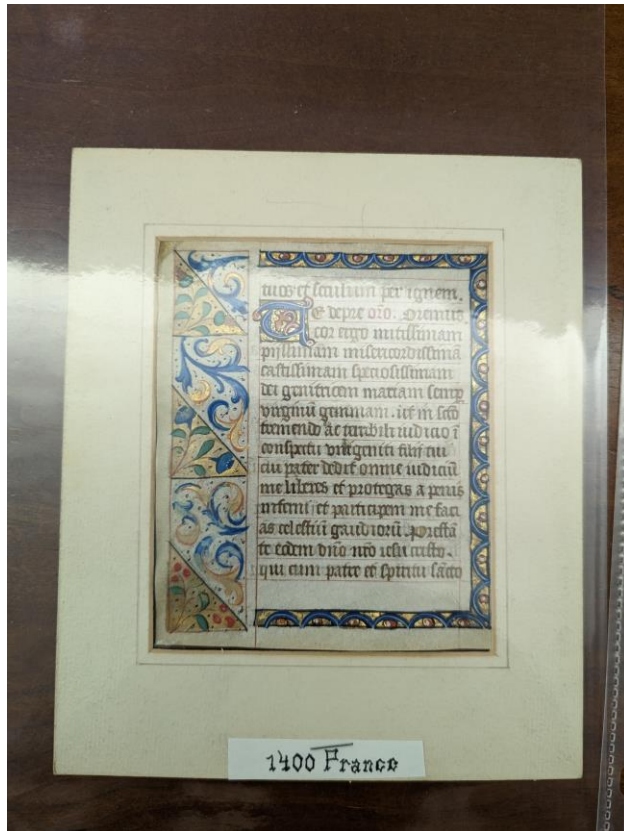 tuos et seculum per ignem.
Te depre oro. Oremus
cor ergo mitissimam
piissimam misericordissimā
castissimam speciosissimam
dei genitricem mariam semp
virginū gemmam. ut in sco
tremendo ac terribili iudicio ī
conspectu vnigeniti filij tui
cui pater dedit omne iudiciū
me liberes et protegas a penis
inferni, et participem me faci
as celestiū gaudiorū. Prestā
te eodem dn̄o nr̄o iesu cristo.
qui cum patre et spiritu sācto
1400 France